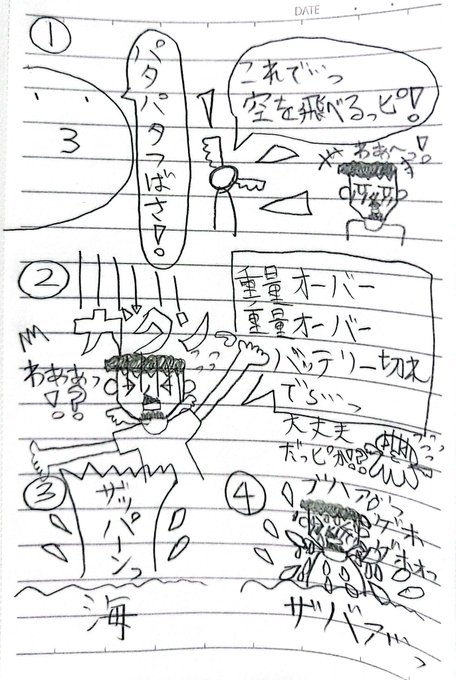 DATE
①
パタパタつばさ!
これで…っ
空を飛べるっピ!
わあ〜っ!
②
ガクンッ
わああっ
!?
重量オーバー
重量オーバー
バッテリー切れ
でら…っ
大丈夫
だっピか!?
③
ザッパーンっ
海
④
ブハアがっ
ゲボオ
ザバアァっ